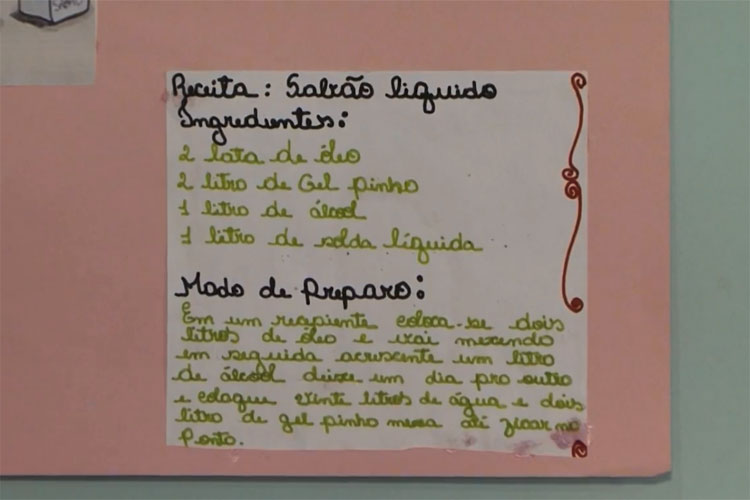 SABÃO
Receita: Sabão líquido
Ingredientes:
2 lata de óleo
2 litro de Gel pinho
1 litro de álcool
1 litro de solda líquida
Modo de Preparo:
Em um recipiente coloca-se dois
litros de óleo e vai mexendo
em seguida acrescente um litro
de álcool deixe um dia pro outro
e coloque vinte litros de água e dois
litro de gel pinho mexa até ficar no
Ponto.